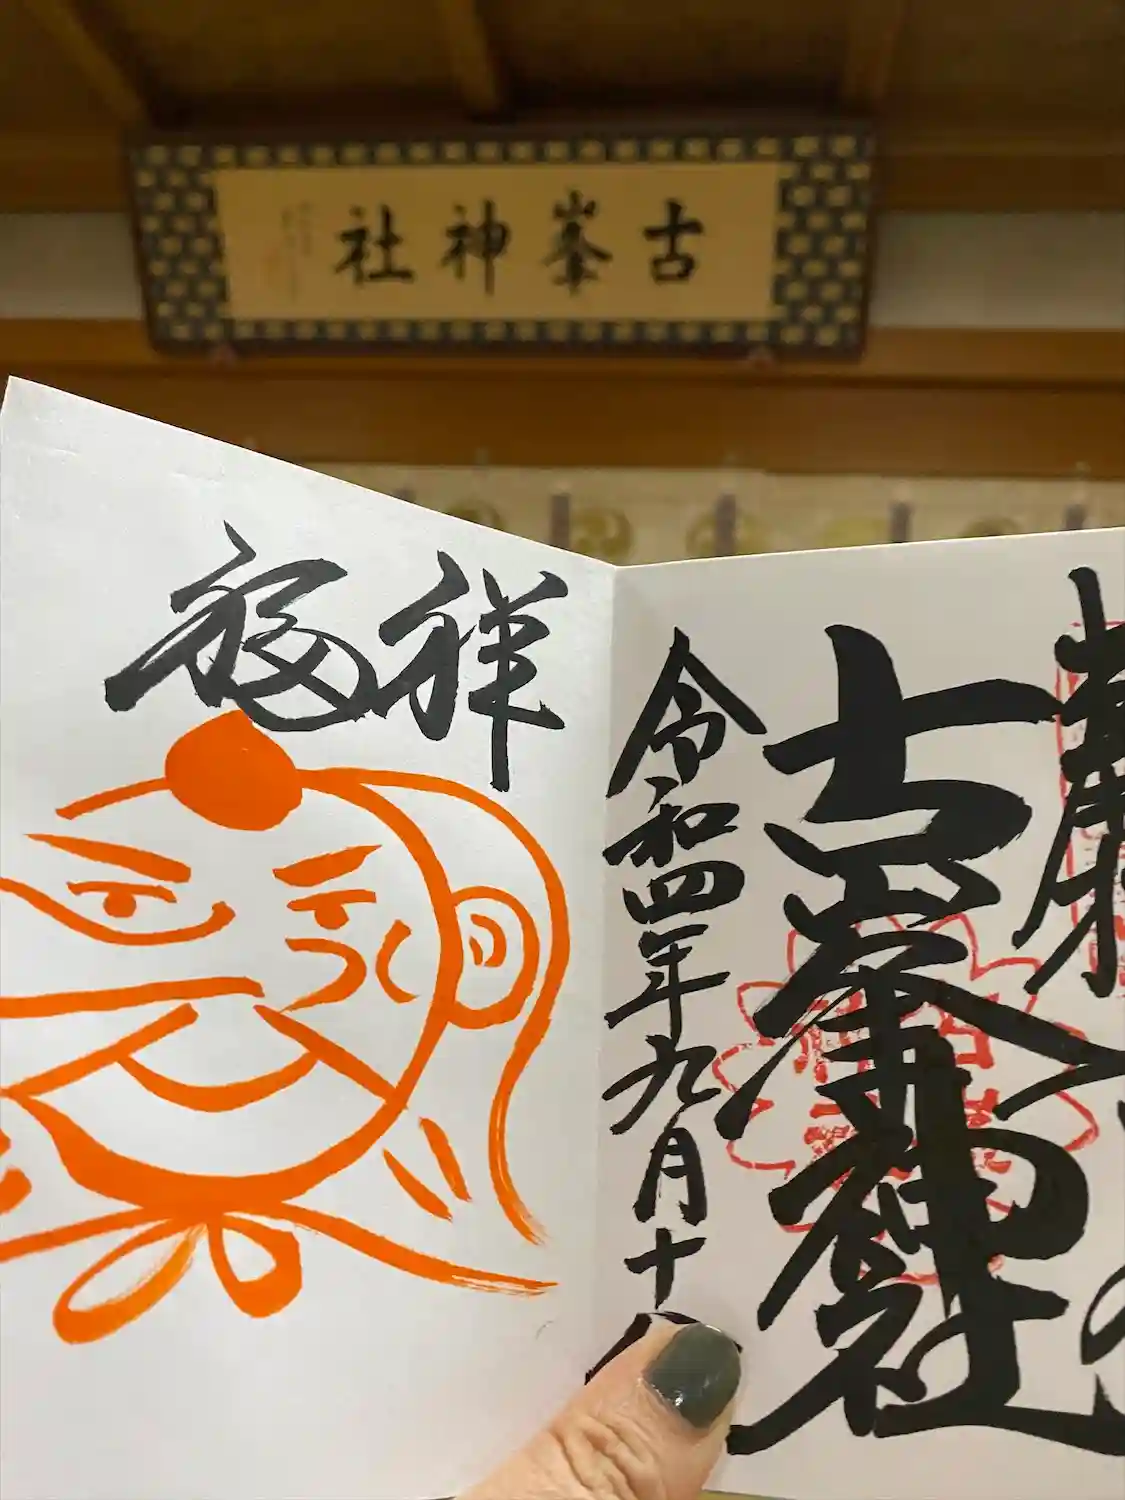 古峯神社
奉拝
古峯神社
令和四年九月十
祥福